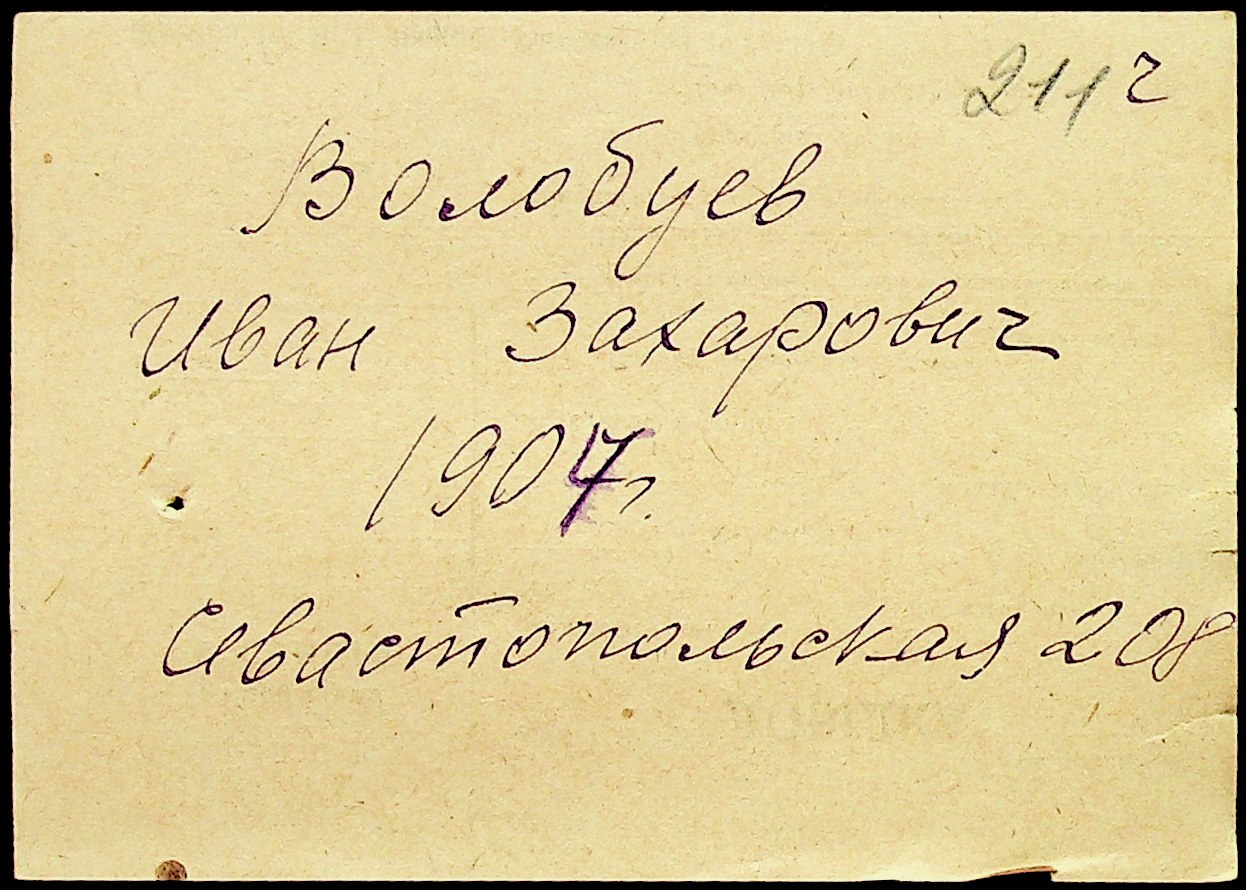 211 ч
Волобуев
Иван Захарович
1907 г.
Севастопольская 208